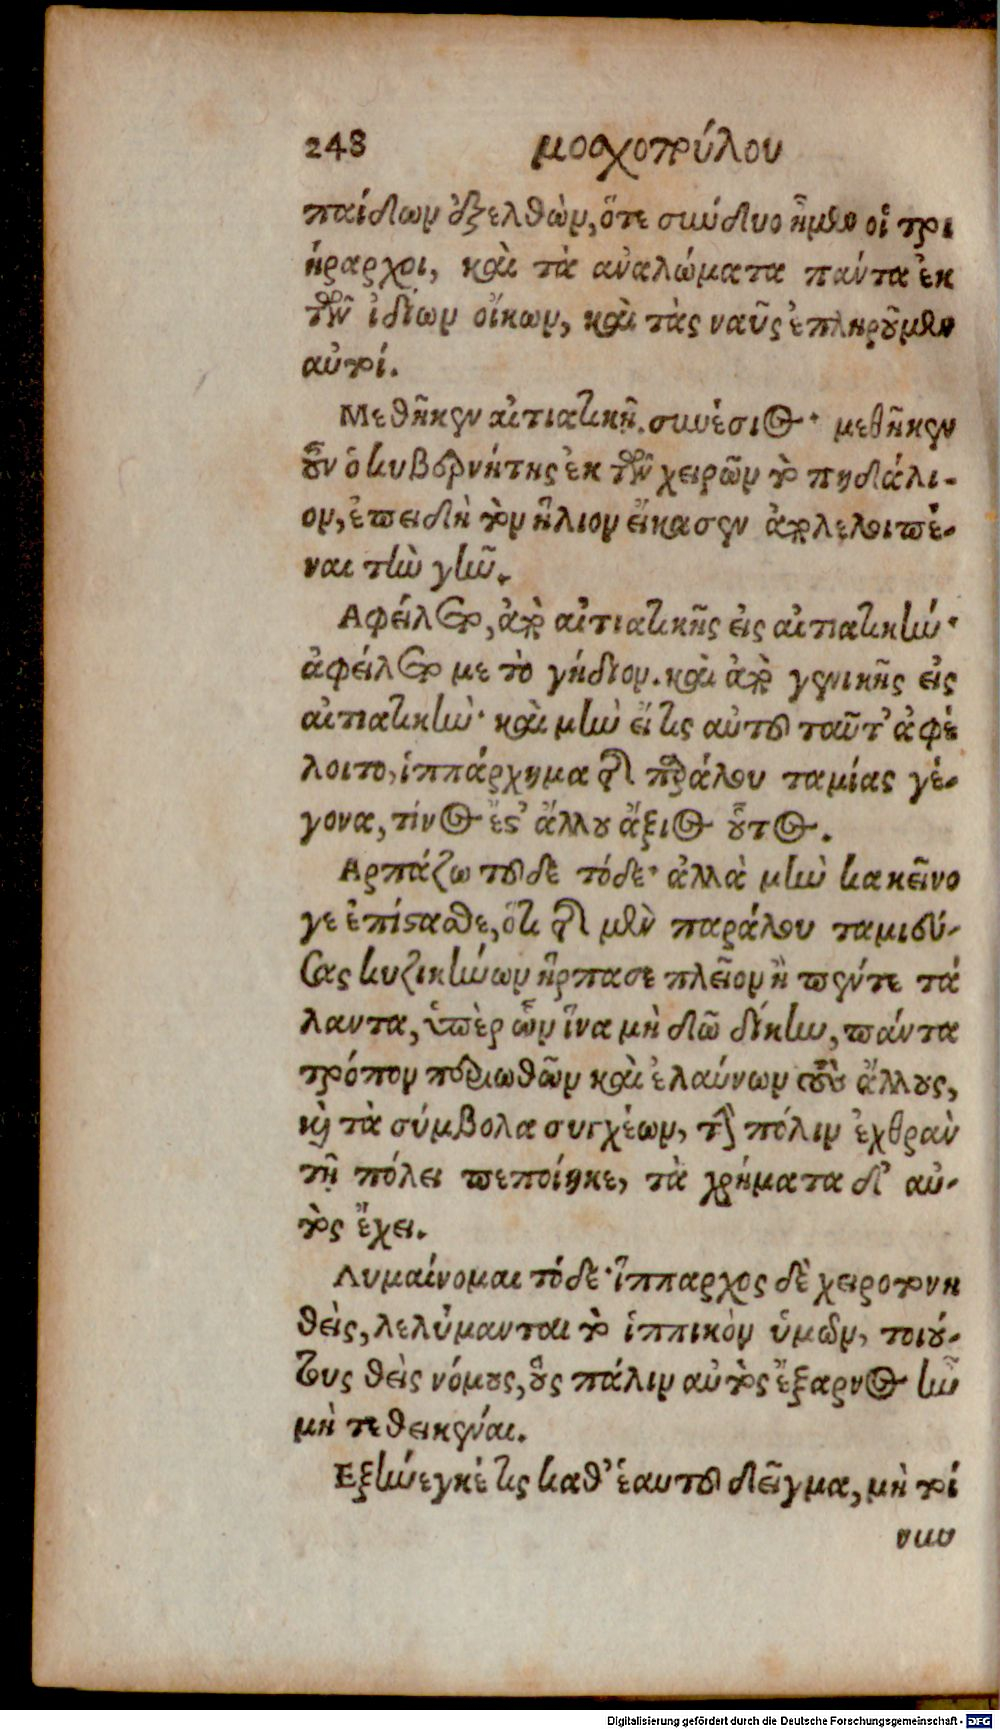 248 μοσχοπούλου
παίδων ἐξελθὼν, ὅτε σύνδυο ἦμεν οἱ τρι
ήραρχοι, καὶ τὰ ἀναλώματα πάντα ἐκ
τῶν ἰδίων οἴκων, καὶ τὰς ναῦς ἐπληρούμεθα
αὐτοί.
Μεθῆκεν αἰτιατικῇ. συνέσιος· μεθῆκεν
οὖν ὁ κυβερνήτης ἐκ τῶν χειρῶν τὸ πηδάλι-
ον, ἐπειδὴ τὸν ἥλιον εἴκασεν ἀπολελοιπέ-
ναι τὴν γῆν.
Αφείλετο, ἀπὸ αἰτιατικῆς εἰς αἰτιατικήν·
ἀφείλετο με τὸ γήδιον. καὶ ἀπὸ γενικῆς εἰς
αἰτιατικὴν· καὶ μὴν εἴ τις αὐτοῦ ταῦτ' ἀφέ-
λοιτο, ἱππάρχημα τῆς παράλου ταμίας γέ-
γονα, τίνος ἔστ' ἄλλου ἄξιος οὗτος.
Αρπάζω τοῦδε τόδε· ἀλλὰ μὴν κακεῖνο
γε ἐπίστασθε, ὅτι τῆς μὲν παράλου ταμιεύ-
σας κυζικηνῶν ἥρπασε πλεῖον ἢ πέντε τά
λαντα, ὑπὲρ ὧν ἵνα μὴ δῶ δίκην, πάντα
τρόπον περιωθῶν καὶ ἐλαύνων τοὺς ἄλλους,
καὶ τὰ σύμβολα συγχέων, τὴν πόλιν ἐχθρὰν
τῇ πόλει πεποίηκε, τὰ χρήματα δ' αὐ-
τὸς ἔχει.
Λυμαίνομαι τόδε· ἵππαρχος δὲ χειροτονη
θεὶς, λελύμανται τὸ ἱππικὸν ὑμῶν, τοιού-
τους θεὶς νόμους, οὓς πάλιν αὐτὸς ἔξαρνος ἦν
μὴ τεθεικέναι.
Εξήνεγκέ τις καθ' ἑαυτοῦ δεῖγμα, μὴ τοί
νυν
Digitalisierung gefördert durch die Deutsche Forschungsgemeinschaft - DFG